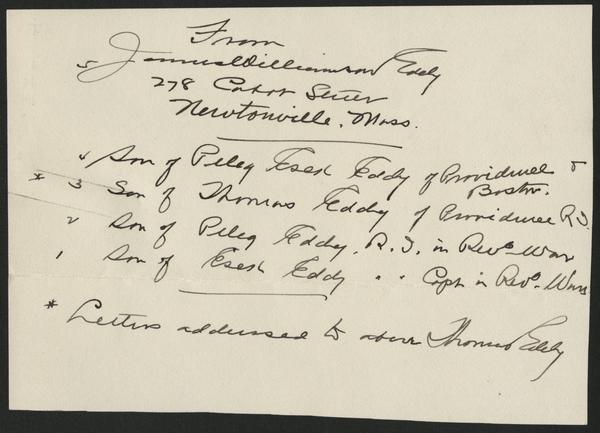 From
5 James Williamson Eddy
278 Cabot Street
Newtonville, Mass.
4 Son of Peleg Esek Eddy of Providence &
Boston.
* 3 Son of Thomas Eddy of Providence R.I.
2 Son of Peleg Eddy. R.I. in Revo. War
1 Son of Esek Eddy " " Capt in Revo. War
* Letters addressed to above Thomas Eddy